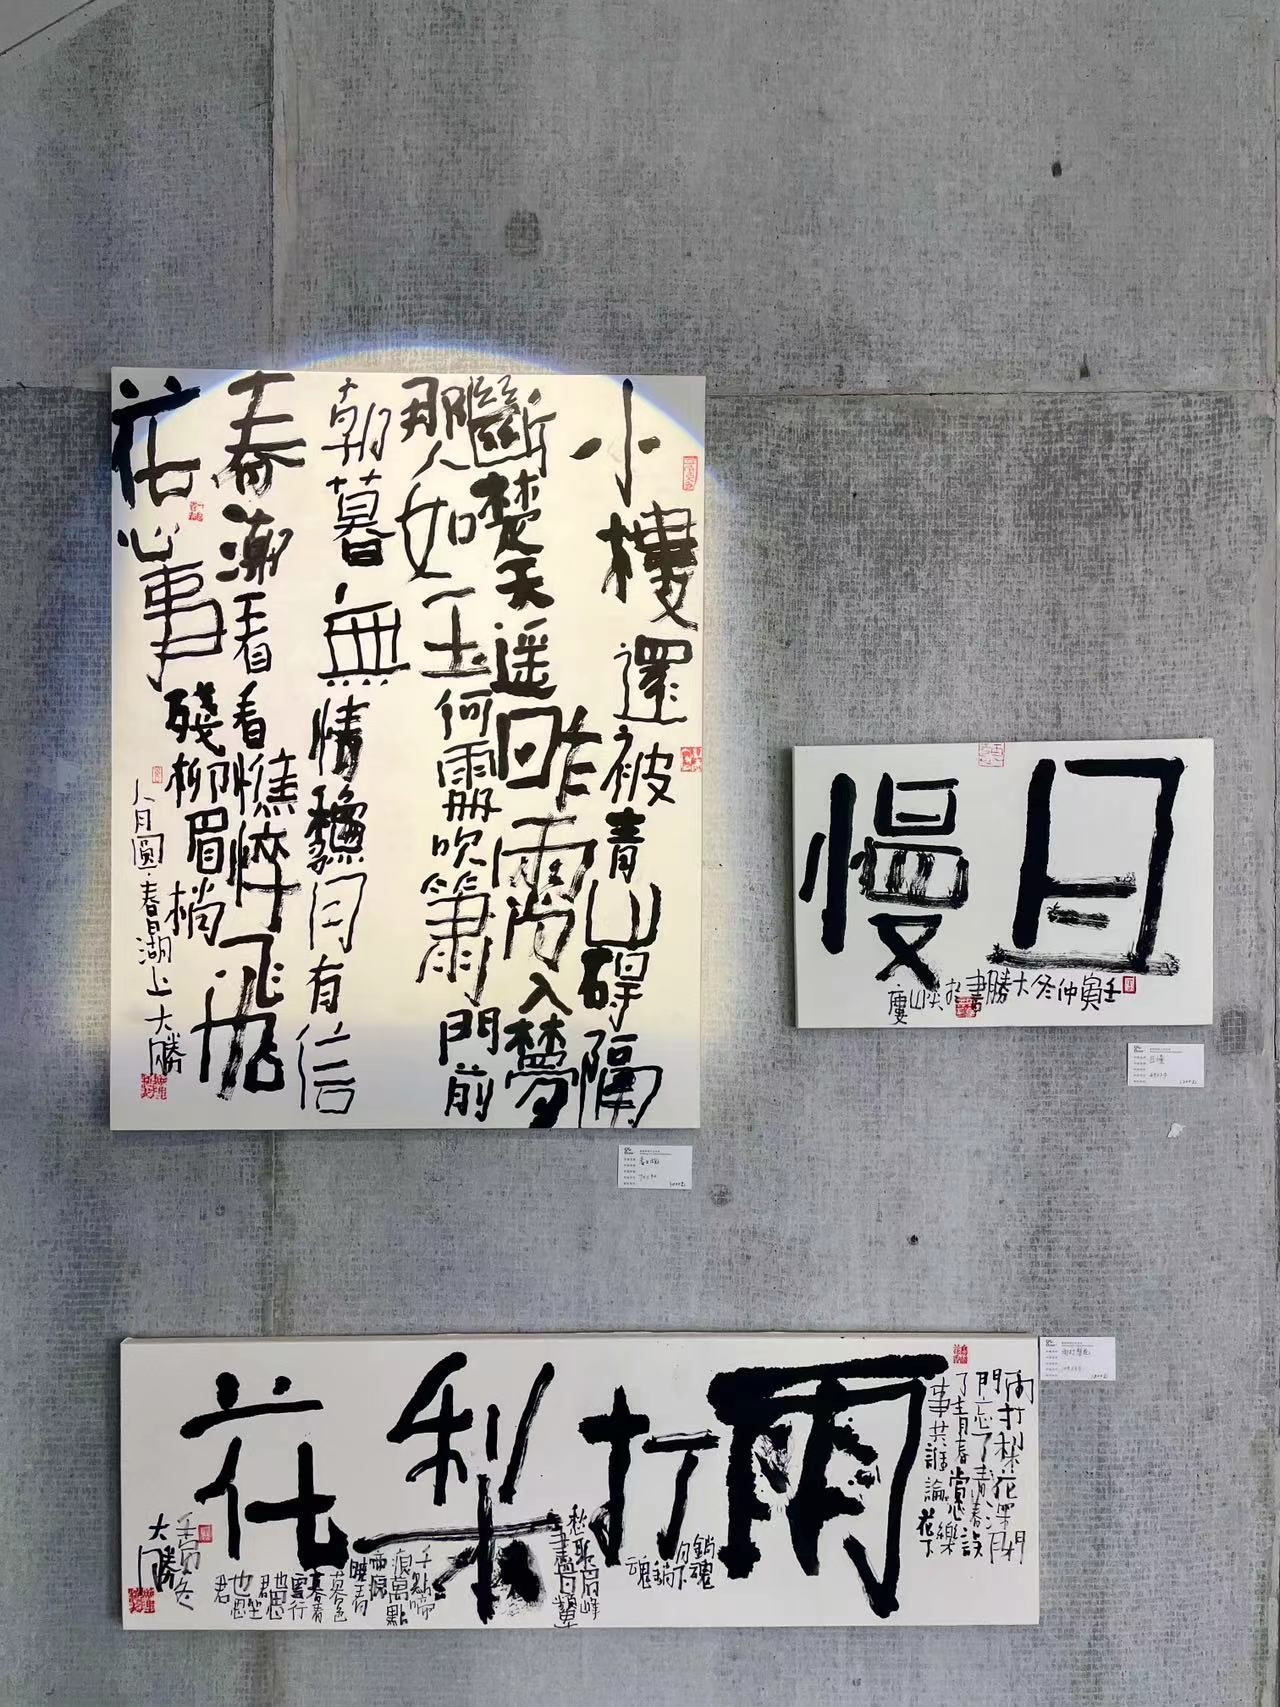 小樓還被青山礙隔
斷楚天遥昨入夢
那人如玉何吹簫門前
朝暮無情穐月有信
春潮看看憔悴飛
花心事殘柳眉梢
人月圓·春日湖上大勝
且慢
壬寅仲冬大勝書於山廔
雨打梨花深閉
門忘了青春誤
了青春賞心樂
事共誰論花下
雨打梨花
銷魂
月下銷
魂
愁聚眉峰
盡日顰
千點啼
痕萬點
啼痕
曉看
色
暮看
雲行
也思
君坐
也思
君
壬寅冬
大勝